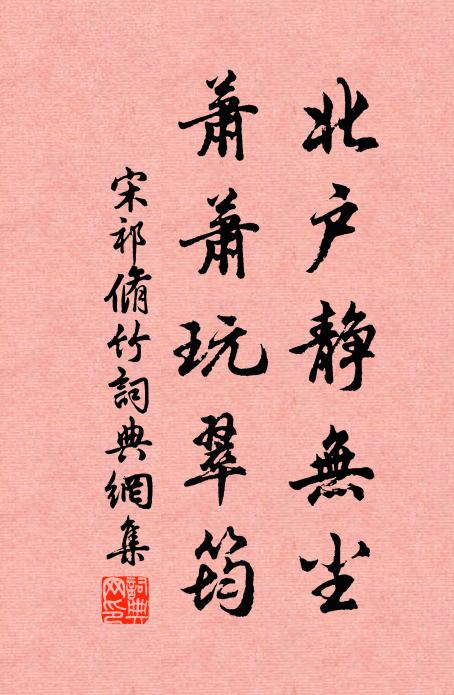 北户静無尘
蕭蕭玩翠筠
宋祁脩竹詞典網集
詞典网印